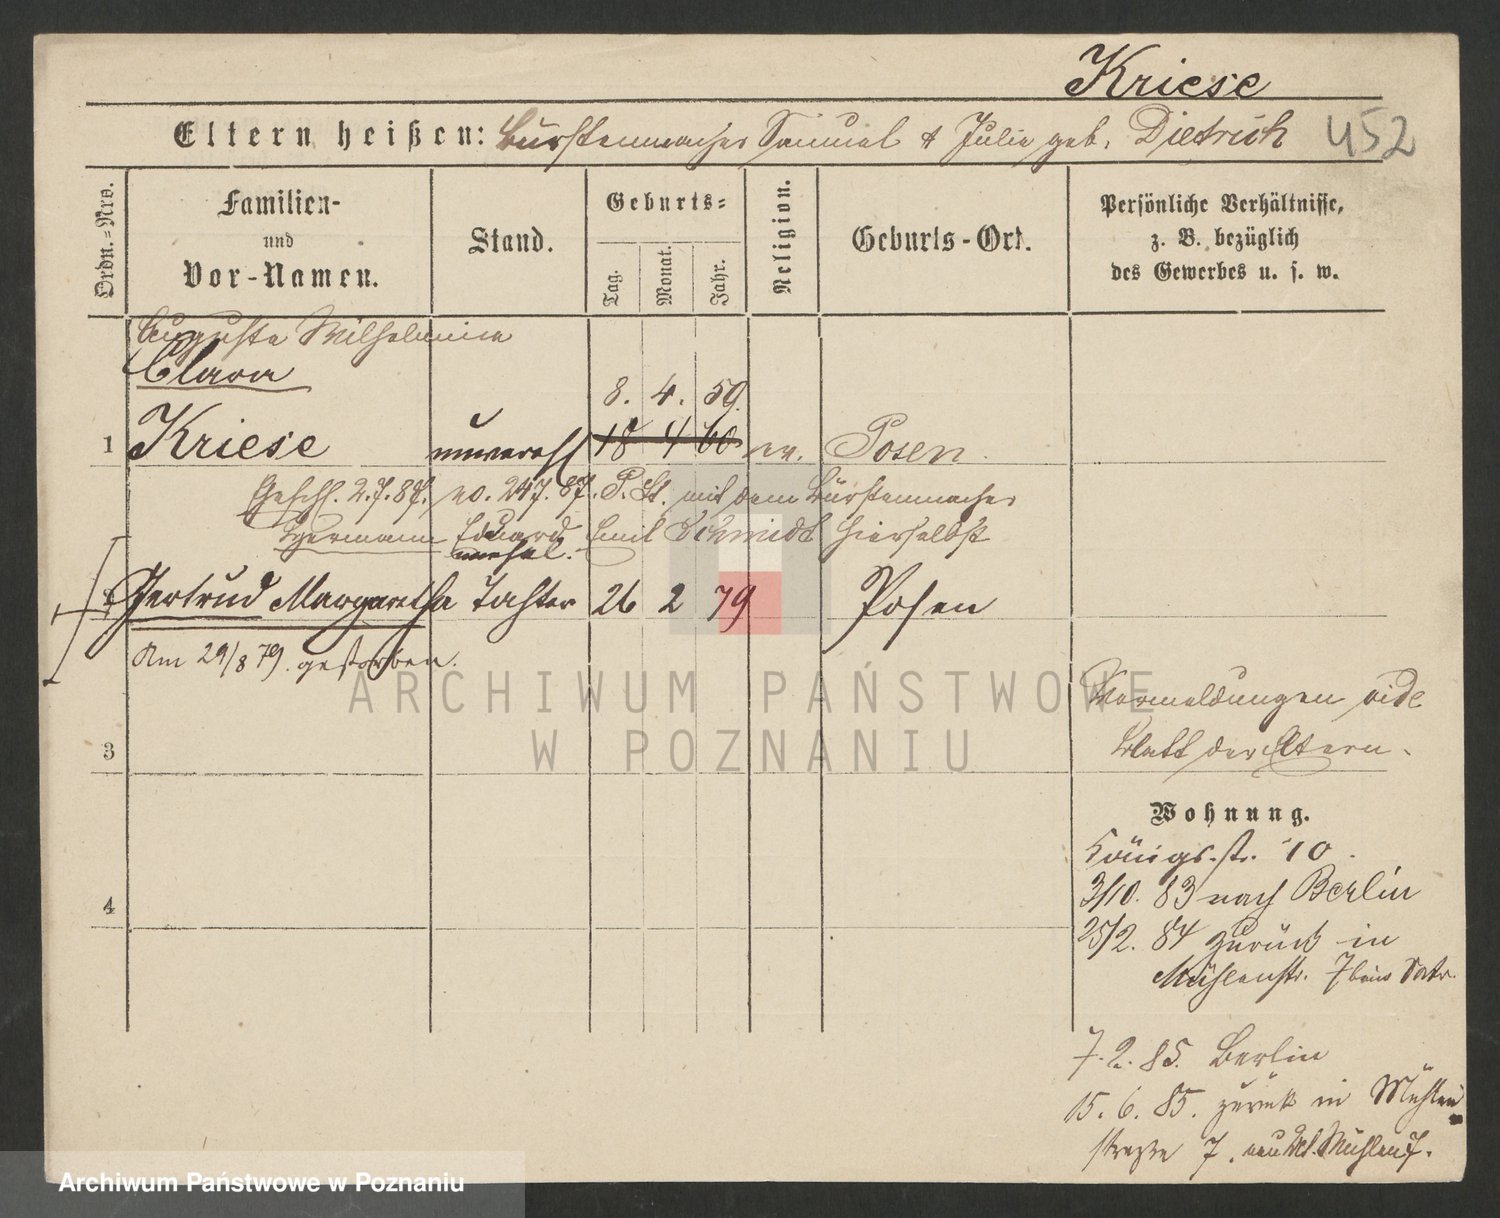 Kriese
Eltern heißen: Bürstenmacher Samuel & Julie geb. Dietrich 452
Ordn.-Nrs.
Familien-
und
Vor-Namen.
Stand.
Geburts-
Tag.
Monat.
Jahr.
Religion.
Geburts-Ort.
Persönliche Verhältnisse,
z. B. bezüglich
des Gewerbes u. s. w.
Auguste Wilhelmine
Clara
8. 4. 59.
1 Kriese unverehl 18 4 60 ev. Posen.
Geschl. 2.7.87. no. 247. 87. P. St. mit dem Bürstenmacher
Hermann Eduard Emil Schmidt hierselbst
unehel.
2 Gertrud Margaretha Tochter 26 2 79 Posen
Am 29/8 79. gestorben.
Vormeldungen vide
Blatt der Eltern.
3
Wohnung.
Königs-str. 10.
3/10. 83 nach Berlin
4
25/2. 84 zurück in
Mühlenstr. 7 beim Vater.
7. 2. 85. Berlin
15. 6. 85. zurück in Mühlen
straße 7. Mühlen 7.
ARCHIWUM PAŃSTWOWE
W POZNANIU
Archiwum Państwowe w Poznaniu